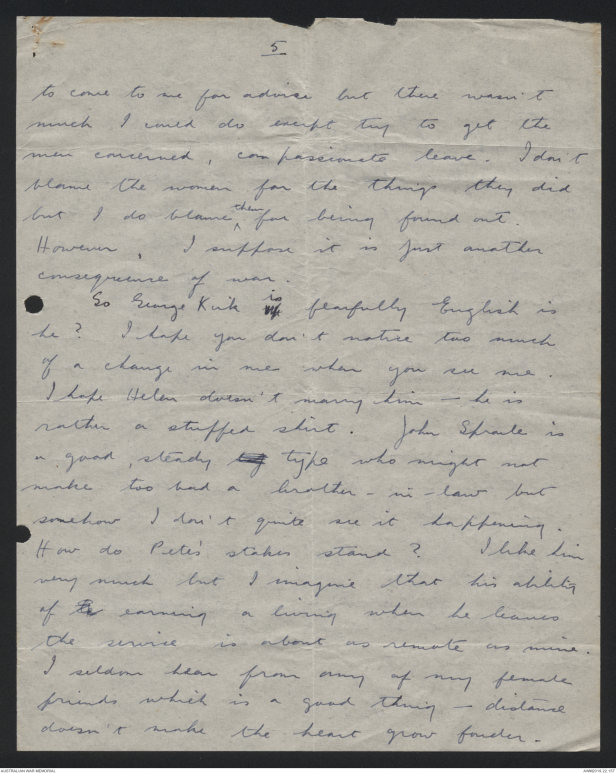 5
to come to me for advise but there wasn't
much I could do except try to get the
men concerned, compassionate leave. I don't
blame the women for the things they did
but I do blame them for being found out.
However, I suppose it is just another
consequence of war.
So George Kirk is fearfully English is
he? I hope you don't notice too much
of a change in me when you see me.
I hope Helen doesn't marry him - he is
rather a stuffed shirt. John Sproule is
a good, steady type who might not
make too bad a brother-in-law but
somehow I don't quite see it happening.
How do Pete's stakes stand? I like him
very much but I imagine that his ability
of earning a living when he leaves
the service is about as remote as mine.
I seldom hear from any of my female
friends which is a good thing - distance
doesn't make the heart grow fonder.
AUSTRALIAN WAR MEMORIAL